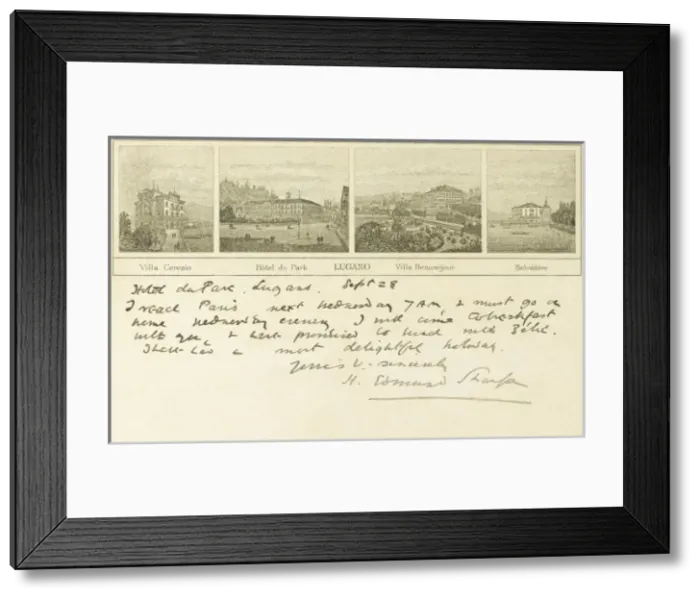 Villa Ceresio Hôtel du Park LUGANO Villa Beauséjour Belvédère
Hotel du Parc. Lugano. Sept 28
I reach Paris next Wednesday 7 AM & must go on
home Wednesday evening I will come to breakfast
with you, & have promised to lunch with
I have had a most delightful holiday.
Yours v. sincerely
H. Edmund Sharpe